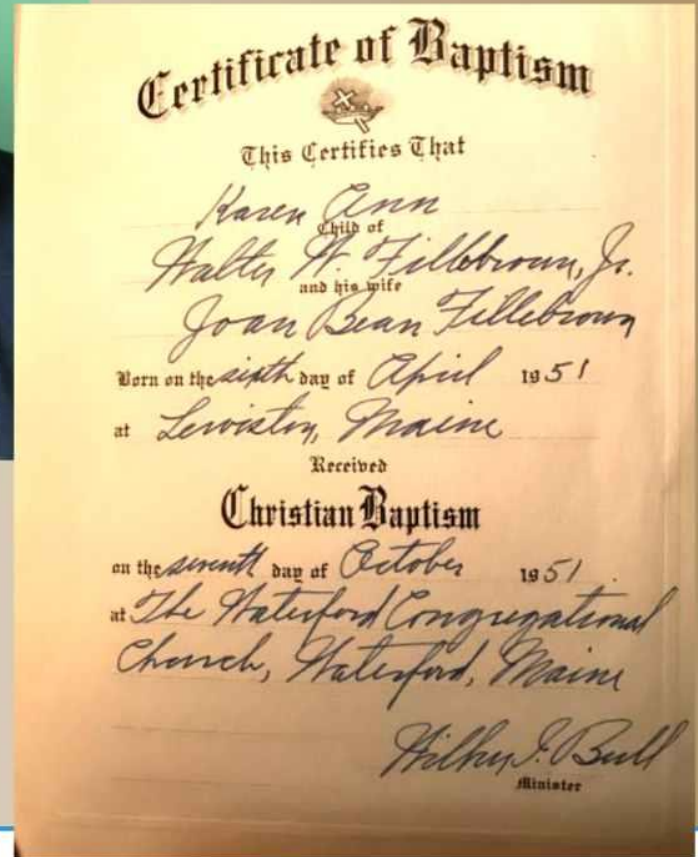 Certificate of Baptism
This Certifies That
Karen Ann
Child of
Walter W. Fillebrown, Jr.
and his wife
Joan Bean Fillebrown
Born on the sixth day of April 1951
at Lewiston, Maine
Received
Christian Baptism
on the seventh day of October 1951
at The Waterford Congregational
Church, Waterford, Maine
Bull
Minister